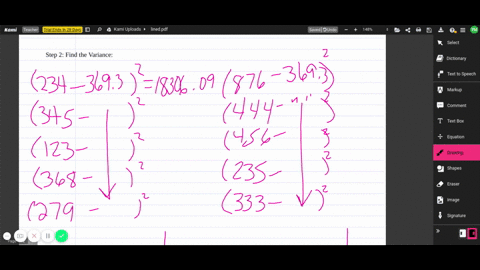 Kami Teacher Trial Ends In 29 Days Kami Uploads > lined.pdf
148%
Step 2: Find the Variance:
(234 - 369.3)² = 18306.09 (876 - 369.3)²
(345 - )² (444 - " " )²
(123 - )² (456 - )²
(368 - )² (235 - )²
(279 - )² (333 - )²
Select
Dictionary
Text to Speech
Markup
Comment
Text Box
Equation
Drawing
Shapes
Eraser
Image
Signature